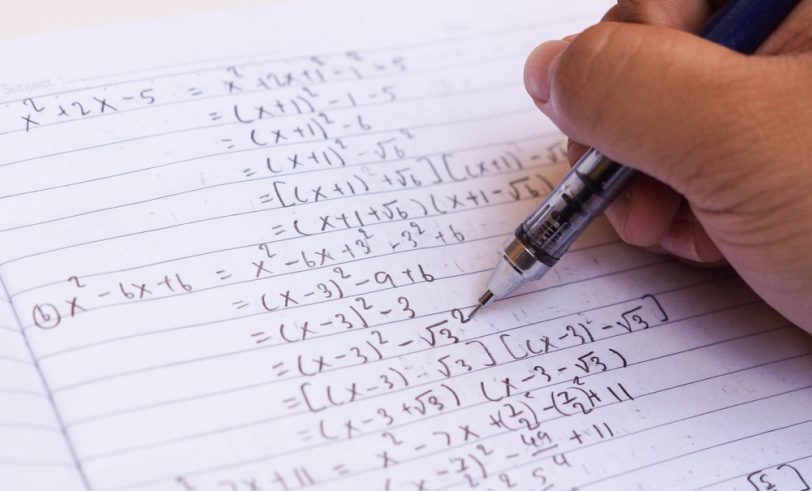 Subject :
x² + 2x - 5 = x² + 2x + 1 - 1² - 5
= (x+1)² - 1 - 5
= (x+1)² - 6
= (x+1)² - √6²
= [(x+1) + √6] [(x+1) - √6
= (x+1+√6) (x+1-√6)
(b) x² - 6x + 6 = x² - 6x + 3² - 3² + 6
= (x-3)² - 9 + 6
= (x-3)² - 3
= (x-3)² - √3²
= [(x-3) - √3] [(x-3) - √3]
= (x-3+√3) (x-3-√3)
7x + 11 = x² - 7x + (7/2)² - (7/2)² + 11
(x - 7/2)² - 49/4 + 11